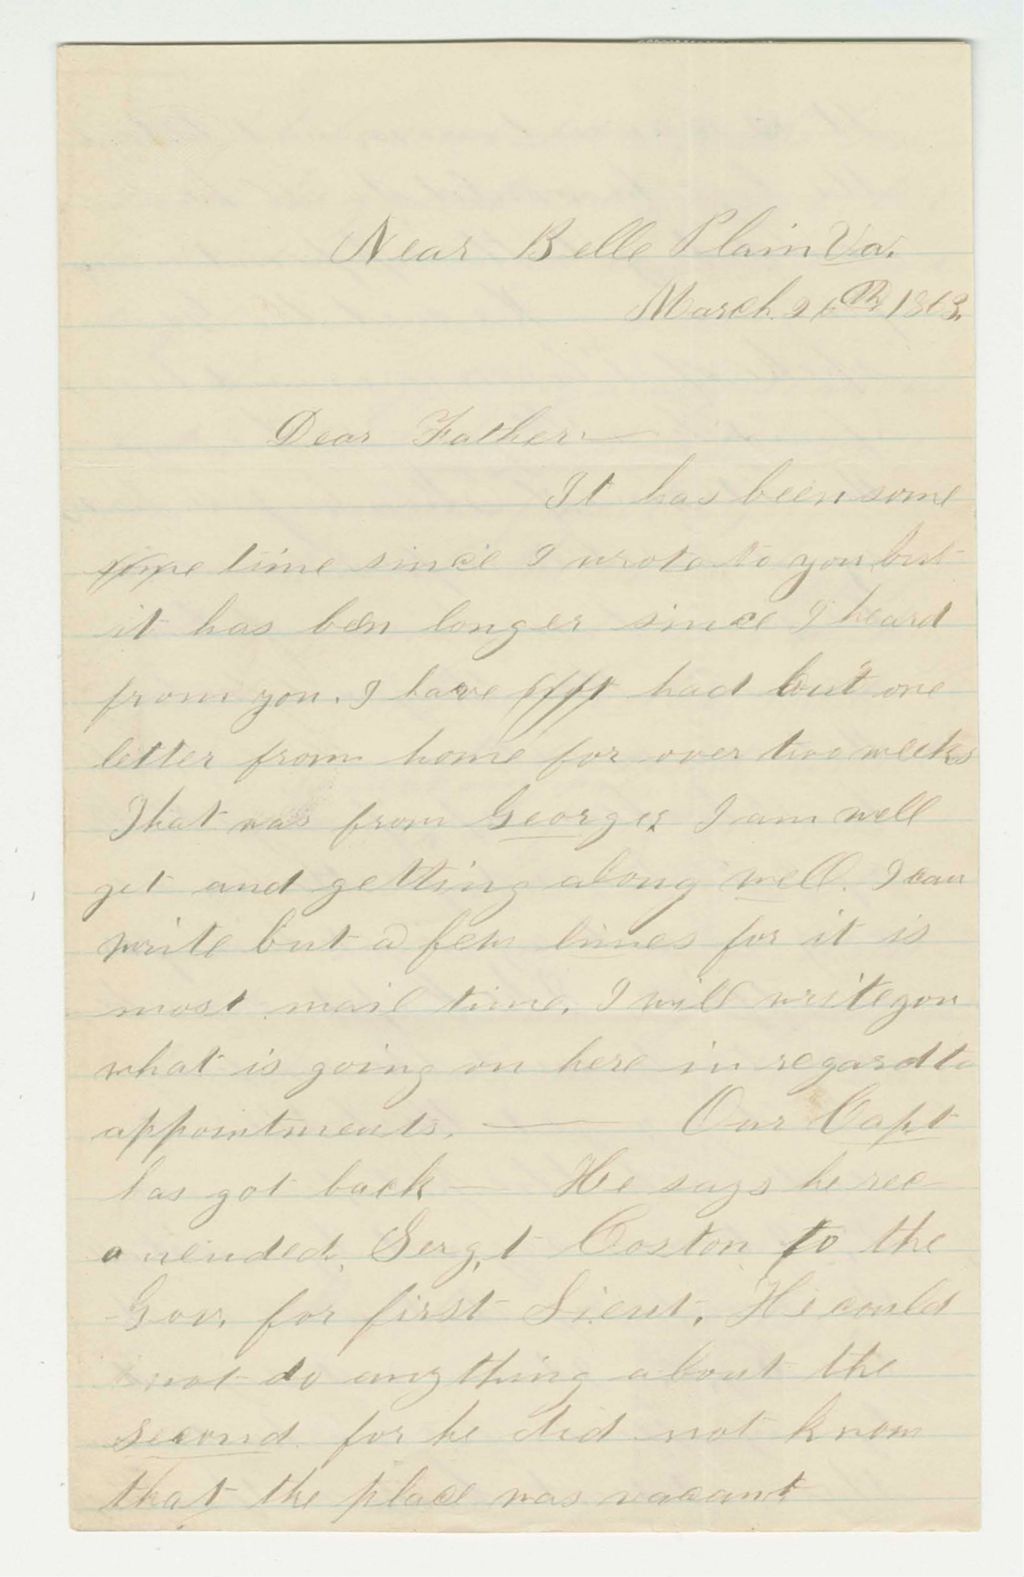 Near Belle Plain Va.
March 26th 1863.
Dear Father
It has been some
some time since I wrote to you but
it has been longer since I heard
from you. I have had but one
letter from home for over two weeks
That was from George. I am well
yet and getting along well. I can
write but a few lines for it is
most mail time. I will write you
what is going on here in regard to
appointments. — Our Capt
has got back — He says he rec-
omended Sergt Coston to the
Gov. for first Lieut. He could
not do anything about the
second for he did not know
that the place was vacant